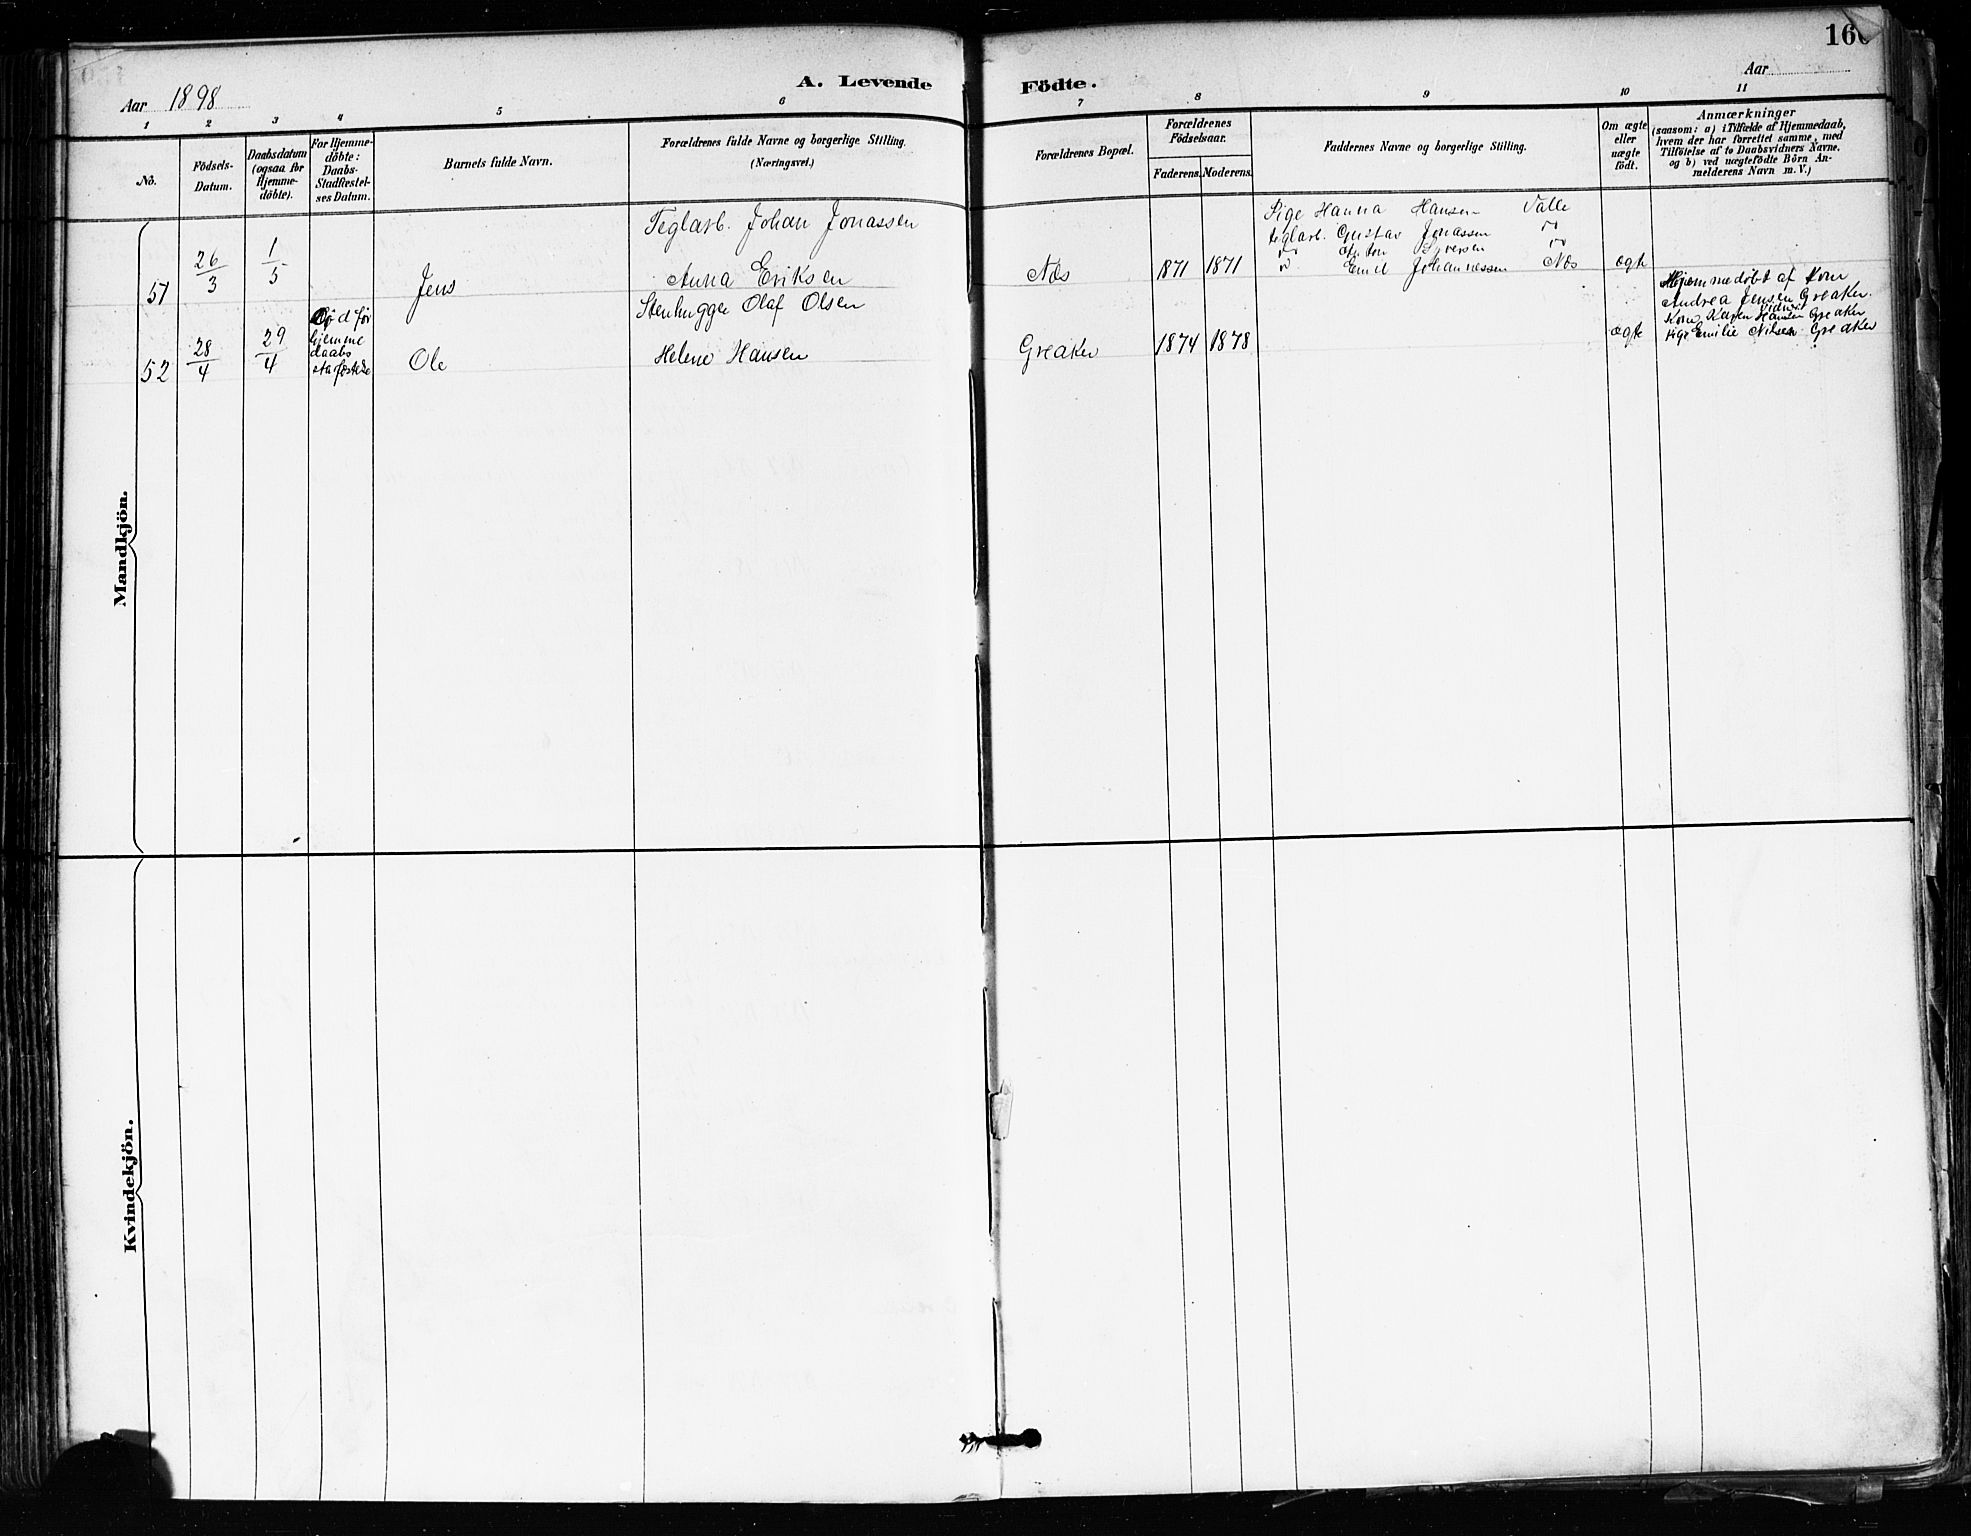 160
A. Levende Födte.
Aar 1898
Aar
1 2 3 4 5 6 7 8 9 10 11
No.
Födsels-
Datum.
Daabsdatum
(ogsaa for
Hjemme-
döbte).
For Hjemme-
döbte:
Daabs-
Stadfæstel-
ses Datum.
Barnets fulde Navn.
Forældrenes fulde Navne og borgerlige Stilling.
(Næringsvei.)
Forældrenes Bopæl.
Forældrenes
Födselsaar.
Faderens. Moderens.
Faddernes Navne og borgerlige Stilling.
Om ægte
eller
uægte
födt.
Anmærkninger
(saasom: a) i Tilfælde af Hjemmedaab,
hvem der har forrettet samme, med
Tilföielse af to Daabsvidners Navne.
og b) ved uægtefödte Börn An-
melderens Navn m. V.)
Mandkjön.
51
26/3
1/5
Jens
Teglarb. Johan Jonassen
Anna Eriksen
Næs
1871 1871
Pige Hanna Hansen Valle
teglarb. Gustav Jonassen do
do Anton Syversen do
do Emil Johannessen Næs
ægte
52
28/4
29/4
Död før
hjemme
daabs
stadfæstelse
Ole
Stenhugge Olaf Olsen
Helene Hansen
Greaker
1874 1878
ægte
Hjemmedöbt af Kone
Andrea Jensen Greaker.
Vidner
Kone Karen Hansen Greaker
pige Emilie Nilsen Greaker
Kvindekjön.